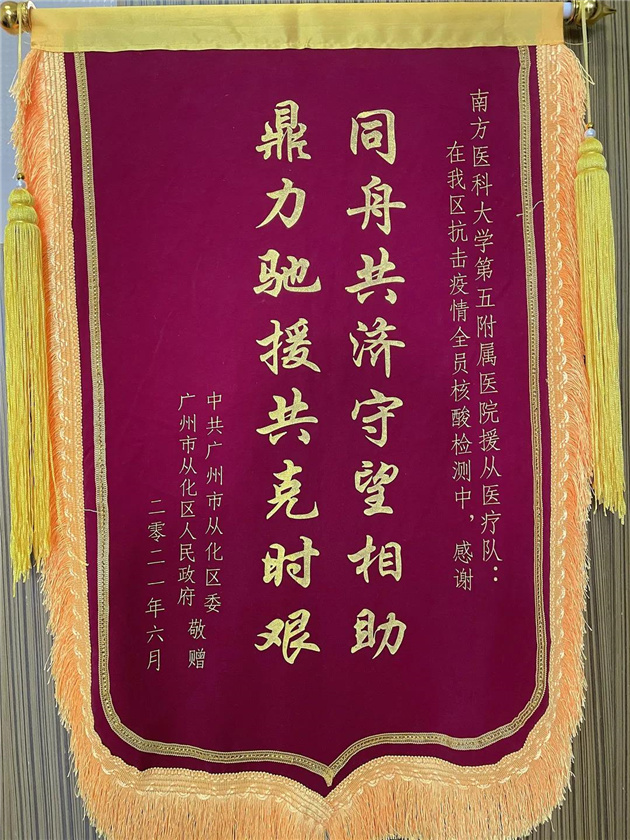 南方医科大学第五附属医院援从医疗队：
在我区抗击疫情全员核酸检测中，感谢
同舟共济守望相助
鼎力驰援共克时艰
中共广州市从化区委
广州市从化区人民政府
敬赠
二零二一年六月